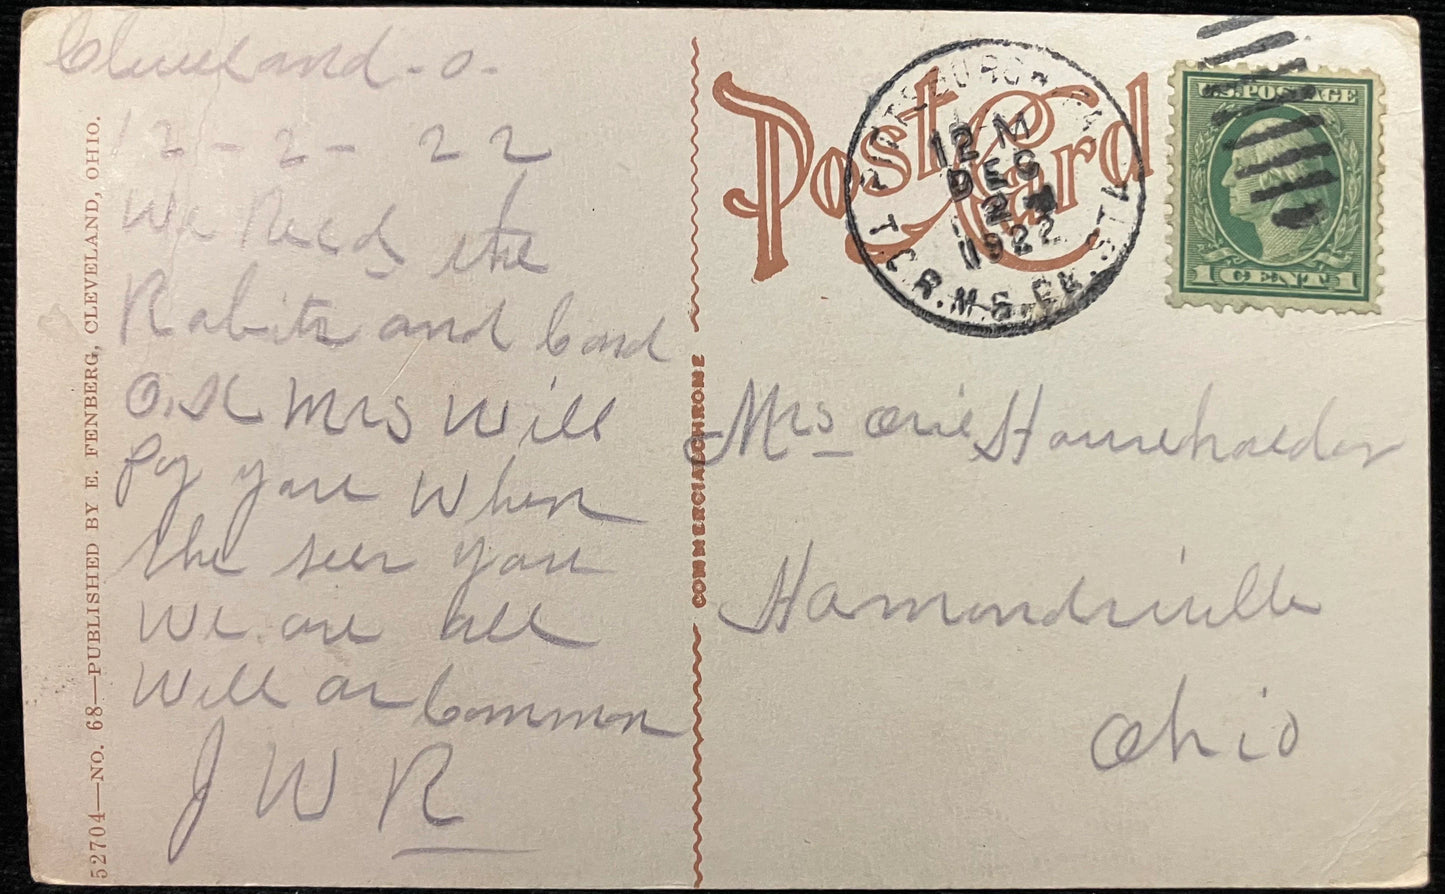 Cleveland - O -
12 - 2 - 22
We Recd the
Rabits and Card
O.K Mrs Will
Pay you When
she seer you
We are all
Well as Common
J W R
52704—NO. 68—PUBLISHED BY E. FENBERG, CLEVELAND, OHIO.
COMMERCIALCHROME
Post Card
PITTSBURGH, PA
12 M
DEC
2
1922
T. & R.M.S. PE. STA
U.S. POSTAGE
1 CENT 1
Mrs Orie Householder
Hamondsville
Ohio